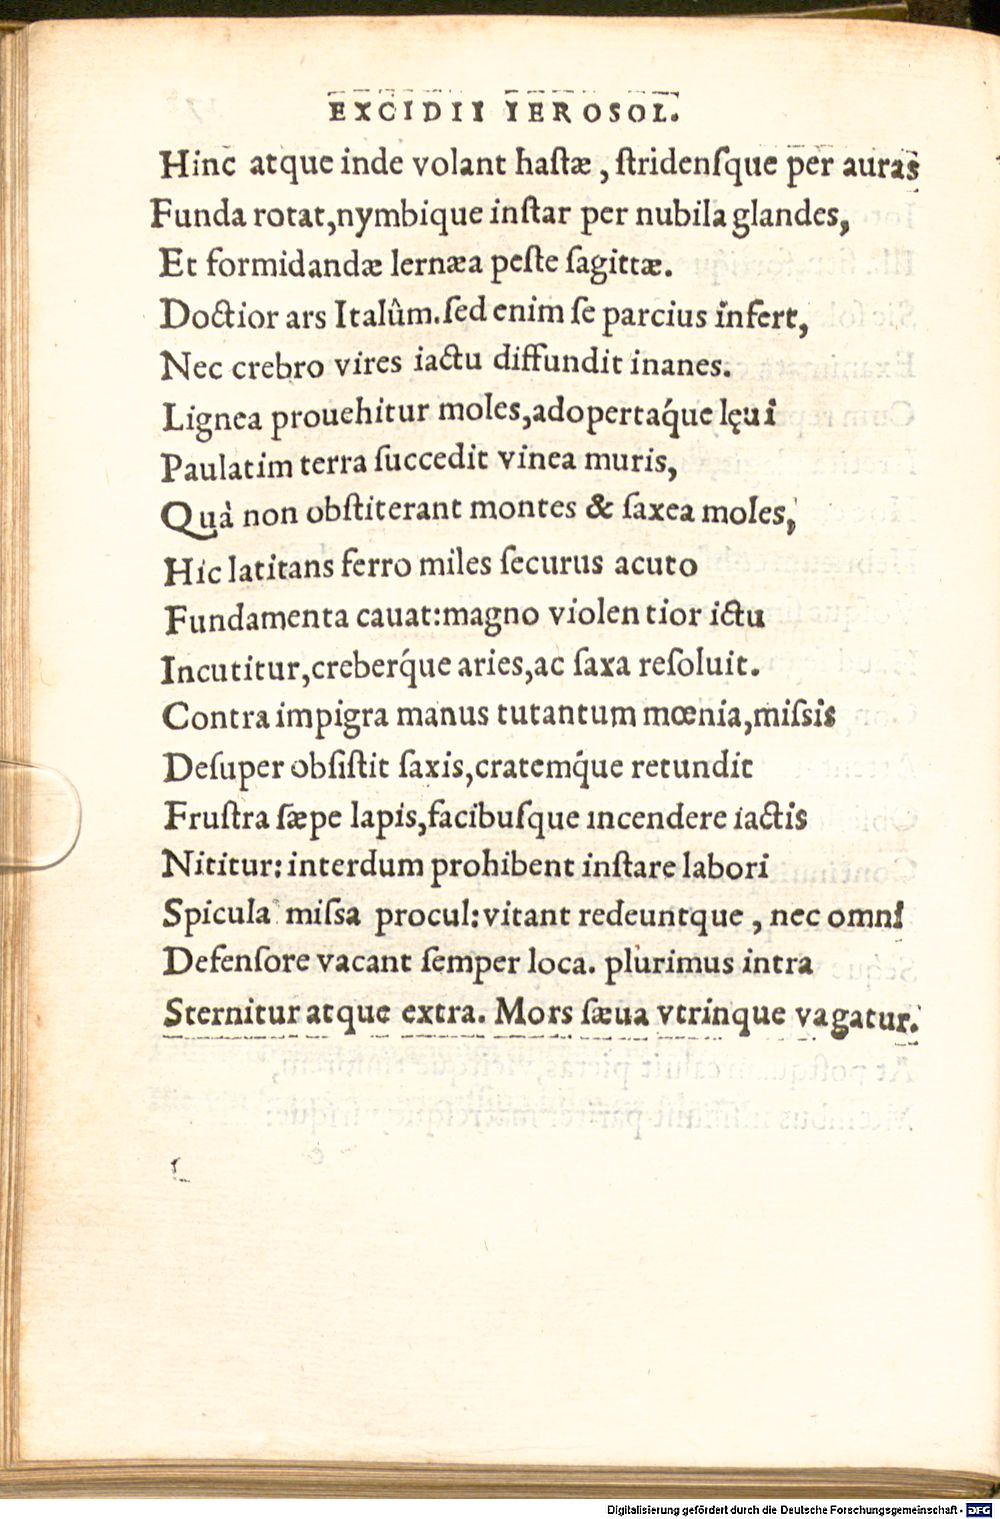 EXCIDII IEROSOL.
Hinc atque inde volant haſtæ, ſtridenſque per auras
Funda rotat,nymbique inſtar per nubila glandes,
Et formidandæ lernæa peſte ſagittæ.
Doctior ars Italûm.ſed enim ſe parcius infert,
Nec crebro vires iactu diffundit inanes.
Lignea prouehitur moles,adopertáque lęui
Paulatim terra ſuccedit vinea muris,
Quà non obſtiterant montes & ſaxea moles,
Hic latitans ferro miles ſecurus acuto
Fundamenta cauat:magno violentior ictu
Incutitur,creberq́ue aries,ac ſaxa reſoluit.
Contra impigra manus tutantum mœnia,miſsis
Deſuper obſiſtit ſaxis,cratemq́ue retundit
Fruſtra ſæpe lapis,facibuſque incendere iactis
Nititur:interdum prohibent inſtare labori
Spicula miſsa procul:vitant redeuntque, nec omni
Defenſore vacant ſemper loca. plurimus intra
Sternitur atque extra. Mors ſæua vtrinque vagatur.
Digitalisierung gefördert durch die Deutsche Forschungsgemeinschaft - DFG